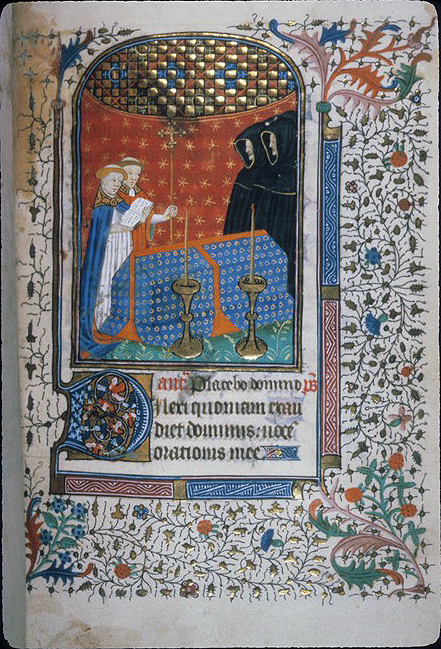 añ. Placebo domino ps̄
Dilexi quoniam exau
diet dominus: uocē
orationis mee